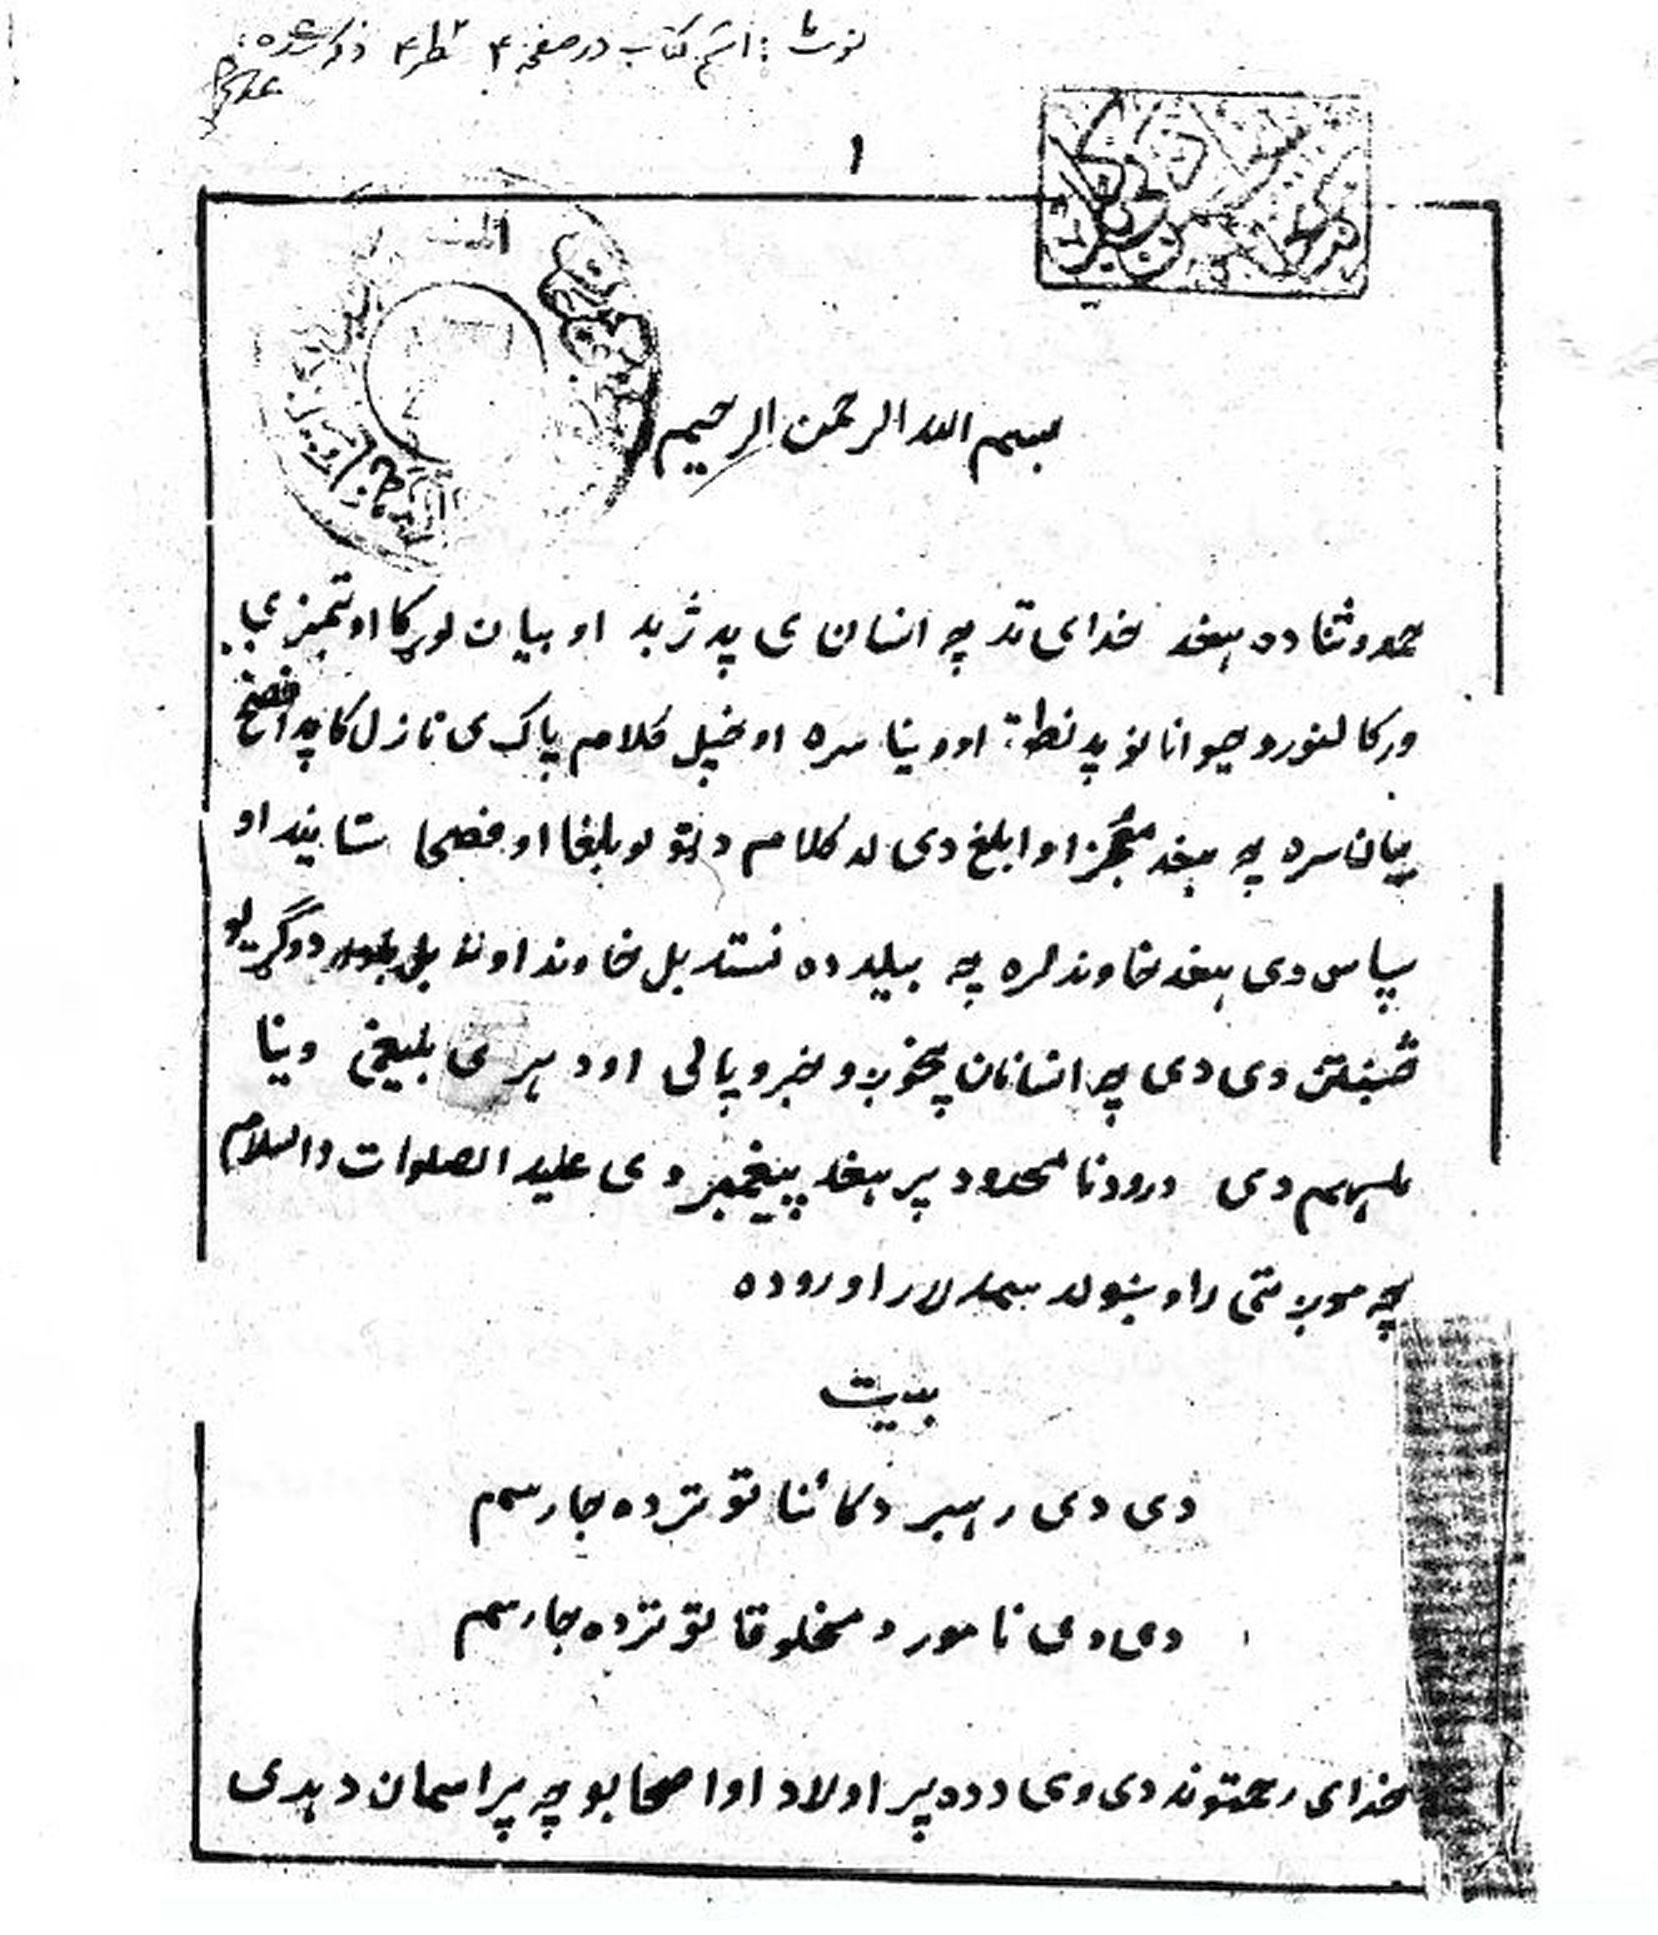 نوت: اسم کتاب در صفحه ۴ سطر ۴ ذکر شده
۱
بسم الله الرحمن الرحیم
حمد وثنا ده هغه خدای ته چه انسان ی په ژبه او بیان لوړ کا او تمیز ی
ورکا لنورو حیوانانو په نطق او وینا سره او خپل کلام پاک ی نازل کا په افصح
بیان سره چه هغه معجز او ابلغ دی له کلام د ټولو بلغا او فصحا ستاینه او
سپاس دی هغه خاوند لره چه بیله ده نسته بل خاوند او نه بل دوګړیو
څښتن دی دی چه انسانان پخوږو خبرو پالی او د هر ی بلیغی وینا
ملهم دی درود نا محدود پر هغه پیغمبر وی علیه الصلوات والسلام
چه موږ ته ئی راوښوله سمه لار او روده
بیت
دی دی رهبر د کائناتو تر ده جار سم
دی دی نامور د مخلوقاتو تر ده جار سم
خدای رحمتونه دی وی د ده پر اولاد او اصحابو چه پر اسمان د هدی